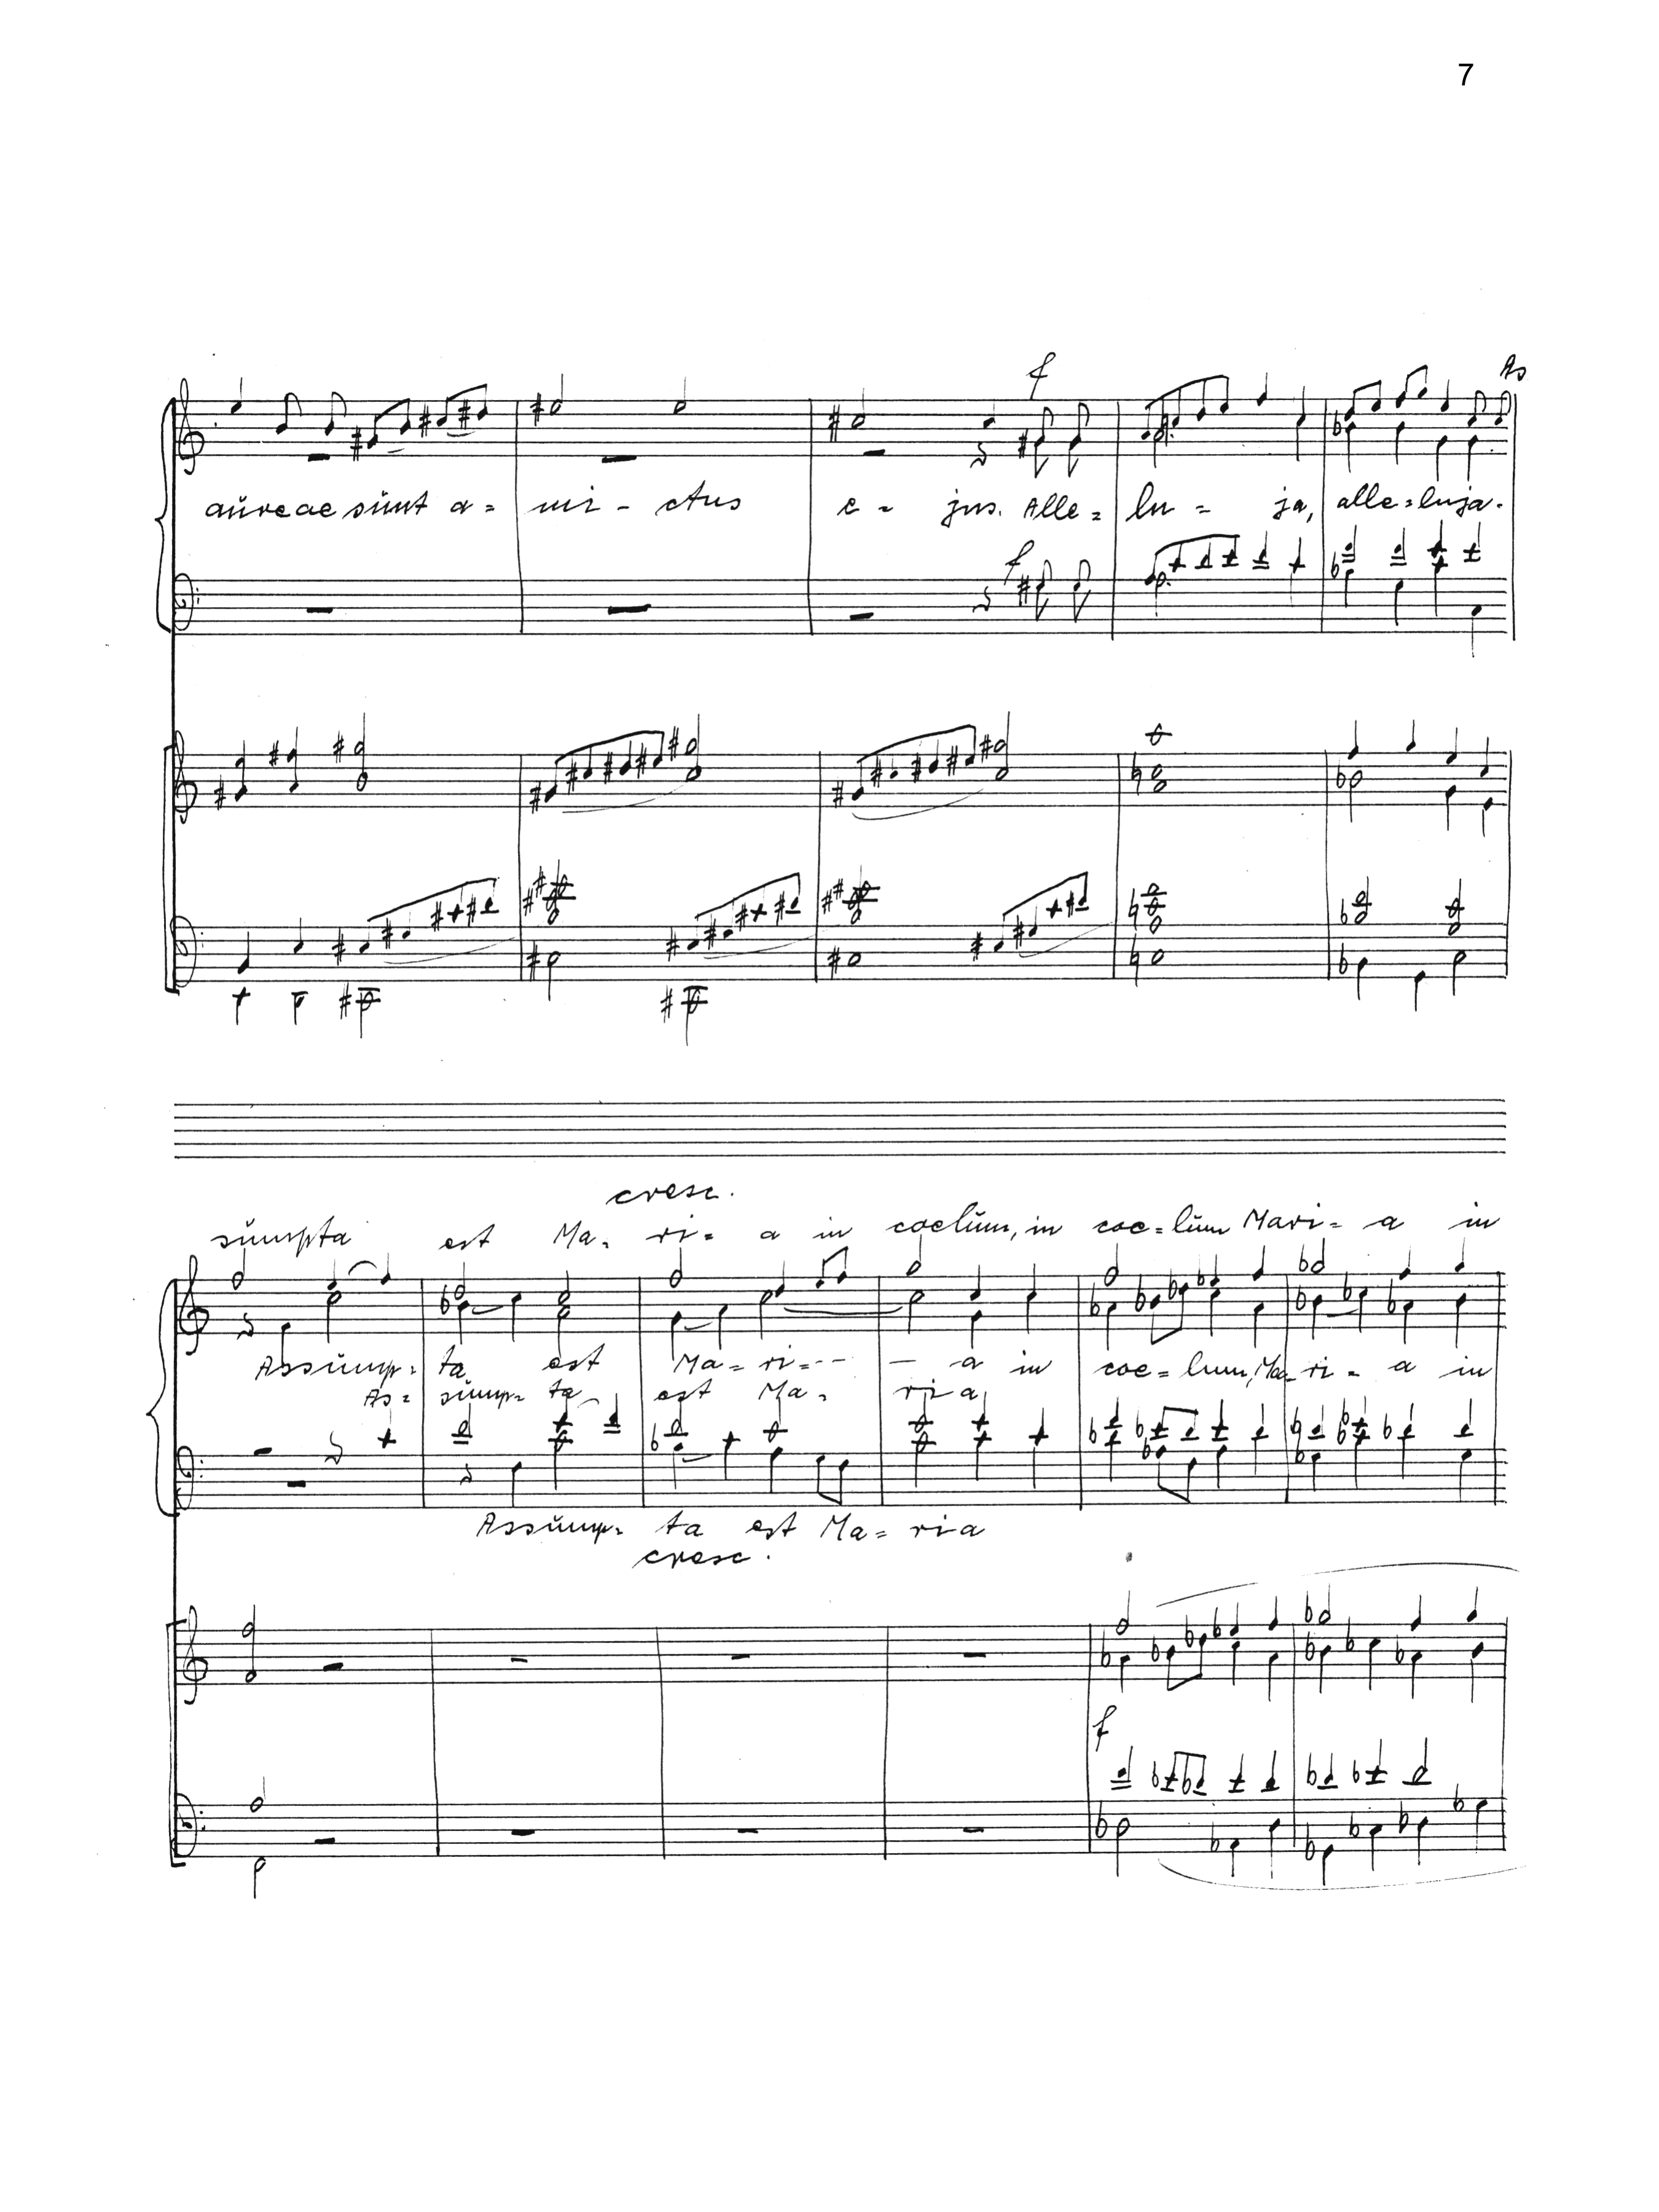 7
f
As
aŭreae sŭnt a= mi- ctus e- jus. Alle= lu= ja, alle=luja.
f
cresc.
sŭmpta est Ma- ri= a in coelŭm, in coe=lŭm Mari= a in
Assŭmp= ta est Ma= ri=-- — a in coe=lum, Ma- ri- a in
As= sŭmp= ta est Ma- ria
Assŭmp= ta est Ma= ria
cresc.
f